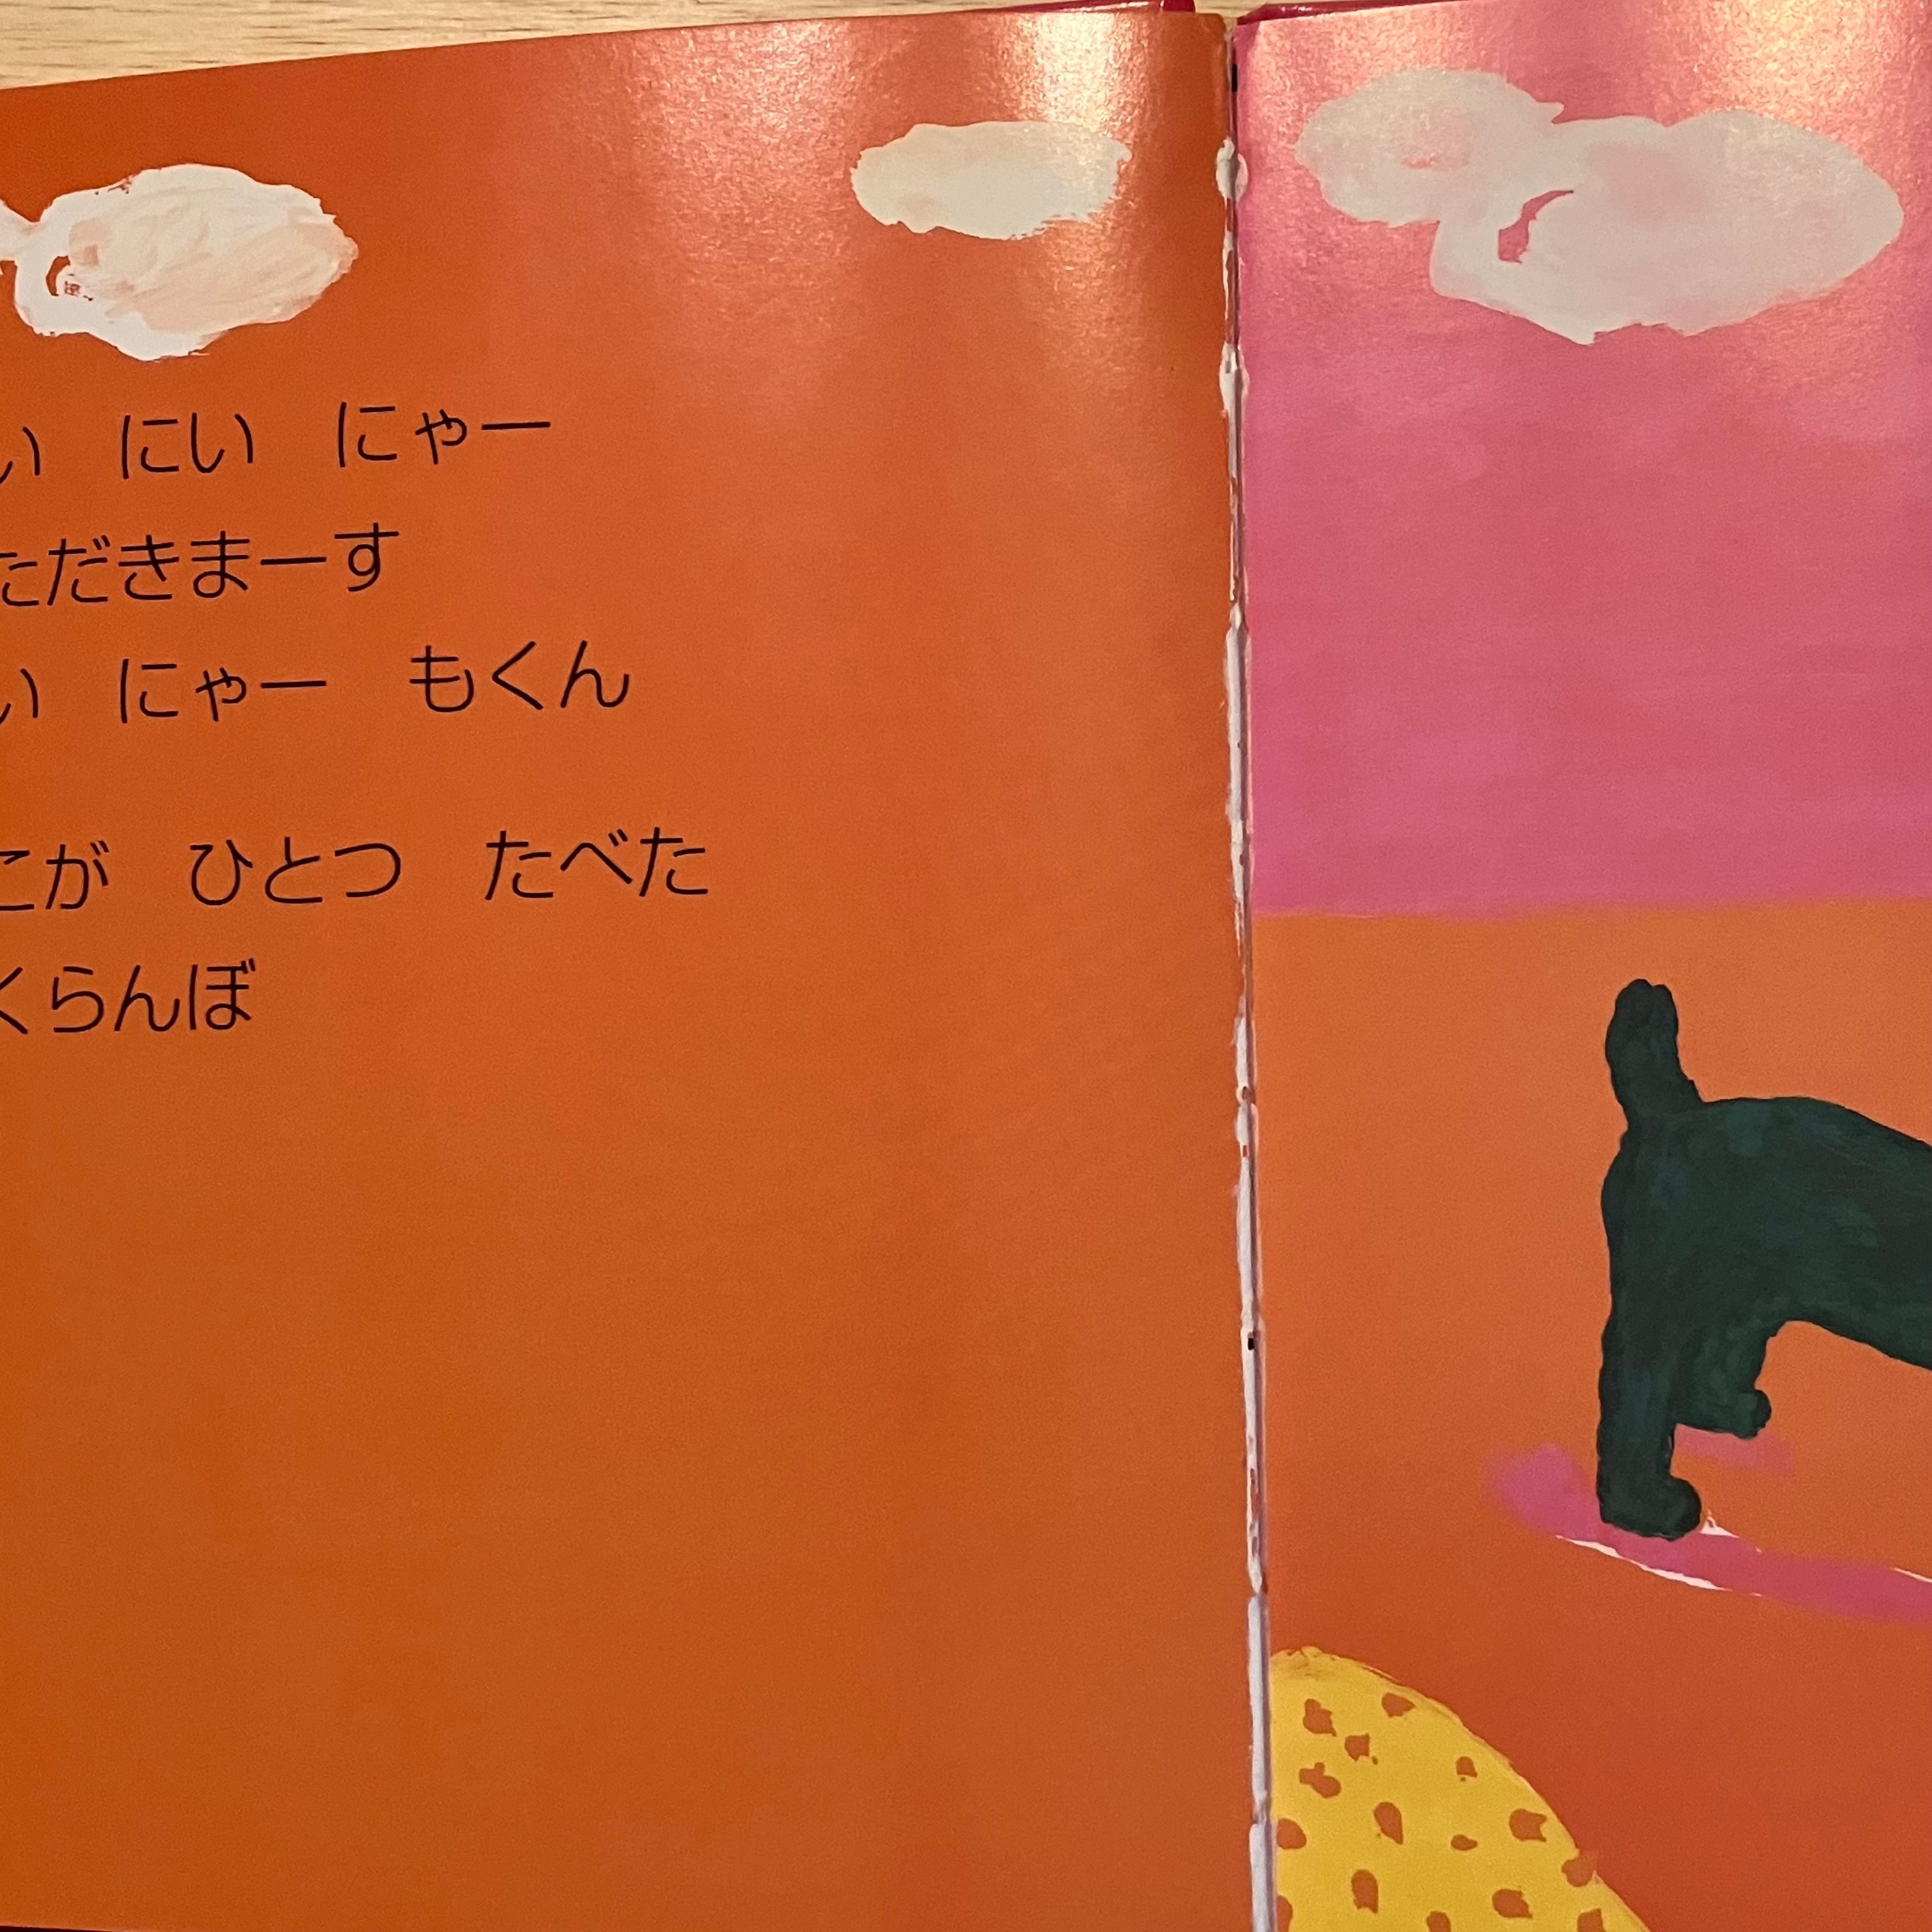 い にい にゃー
ただきまーす
い にゃー もくん
こが ひとつ たべた
くらんぼ